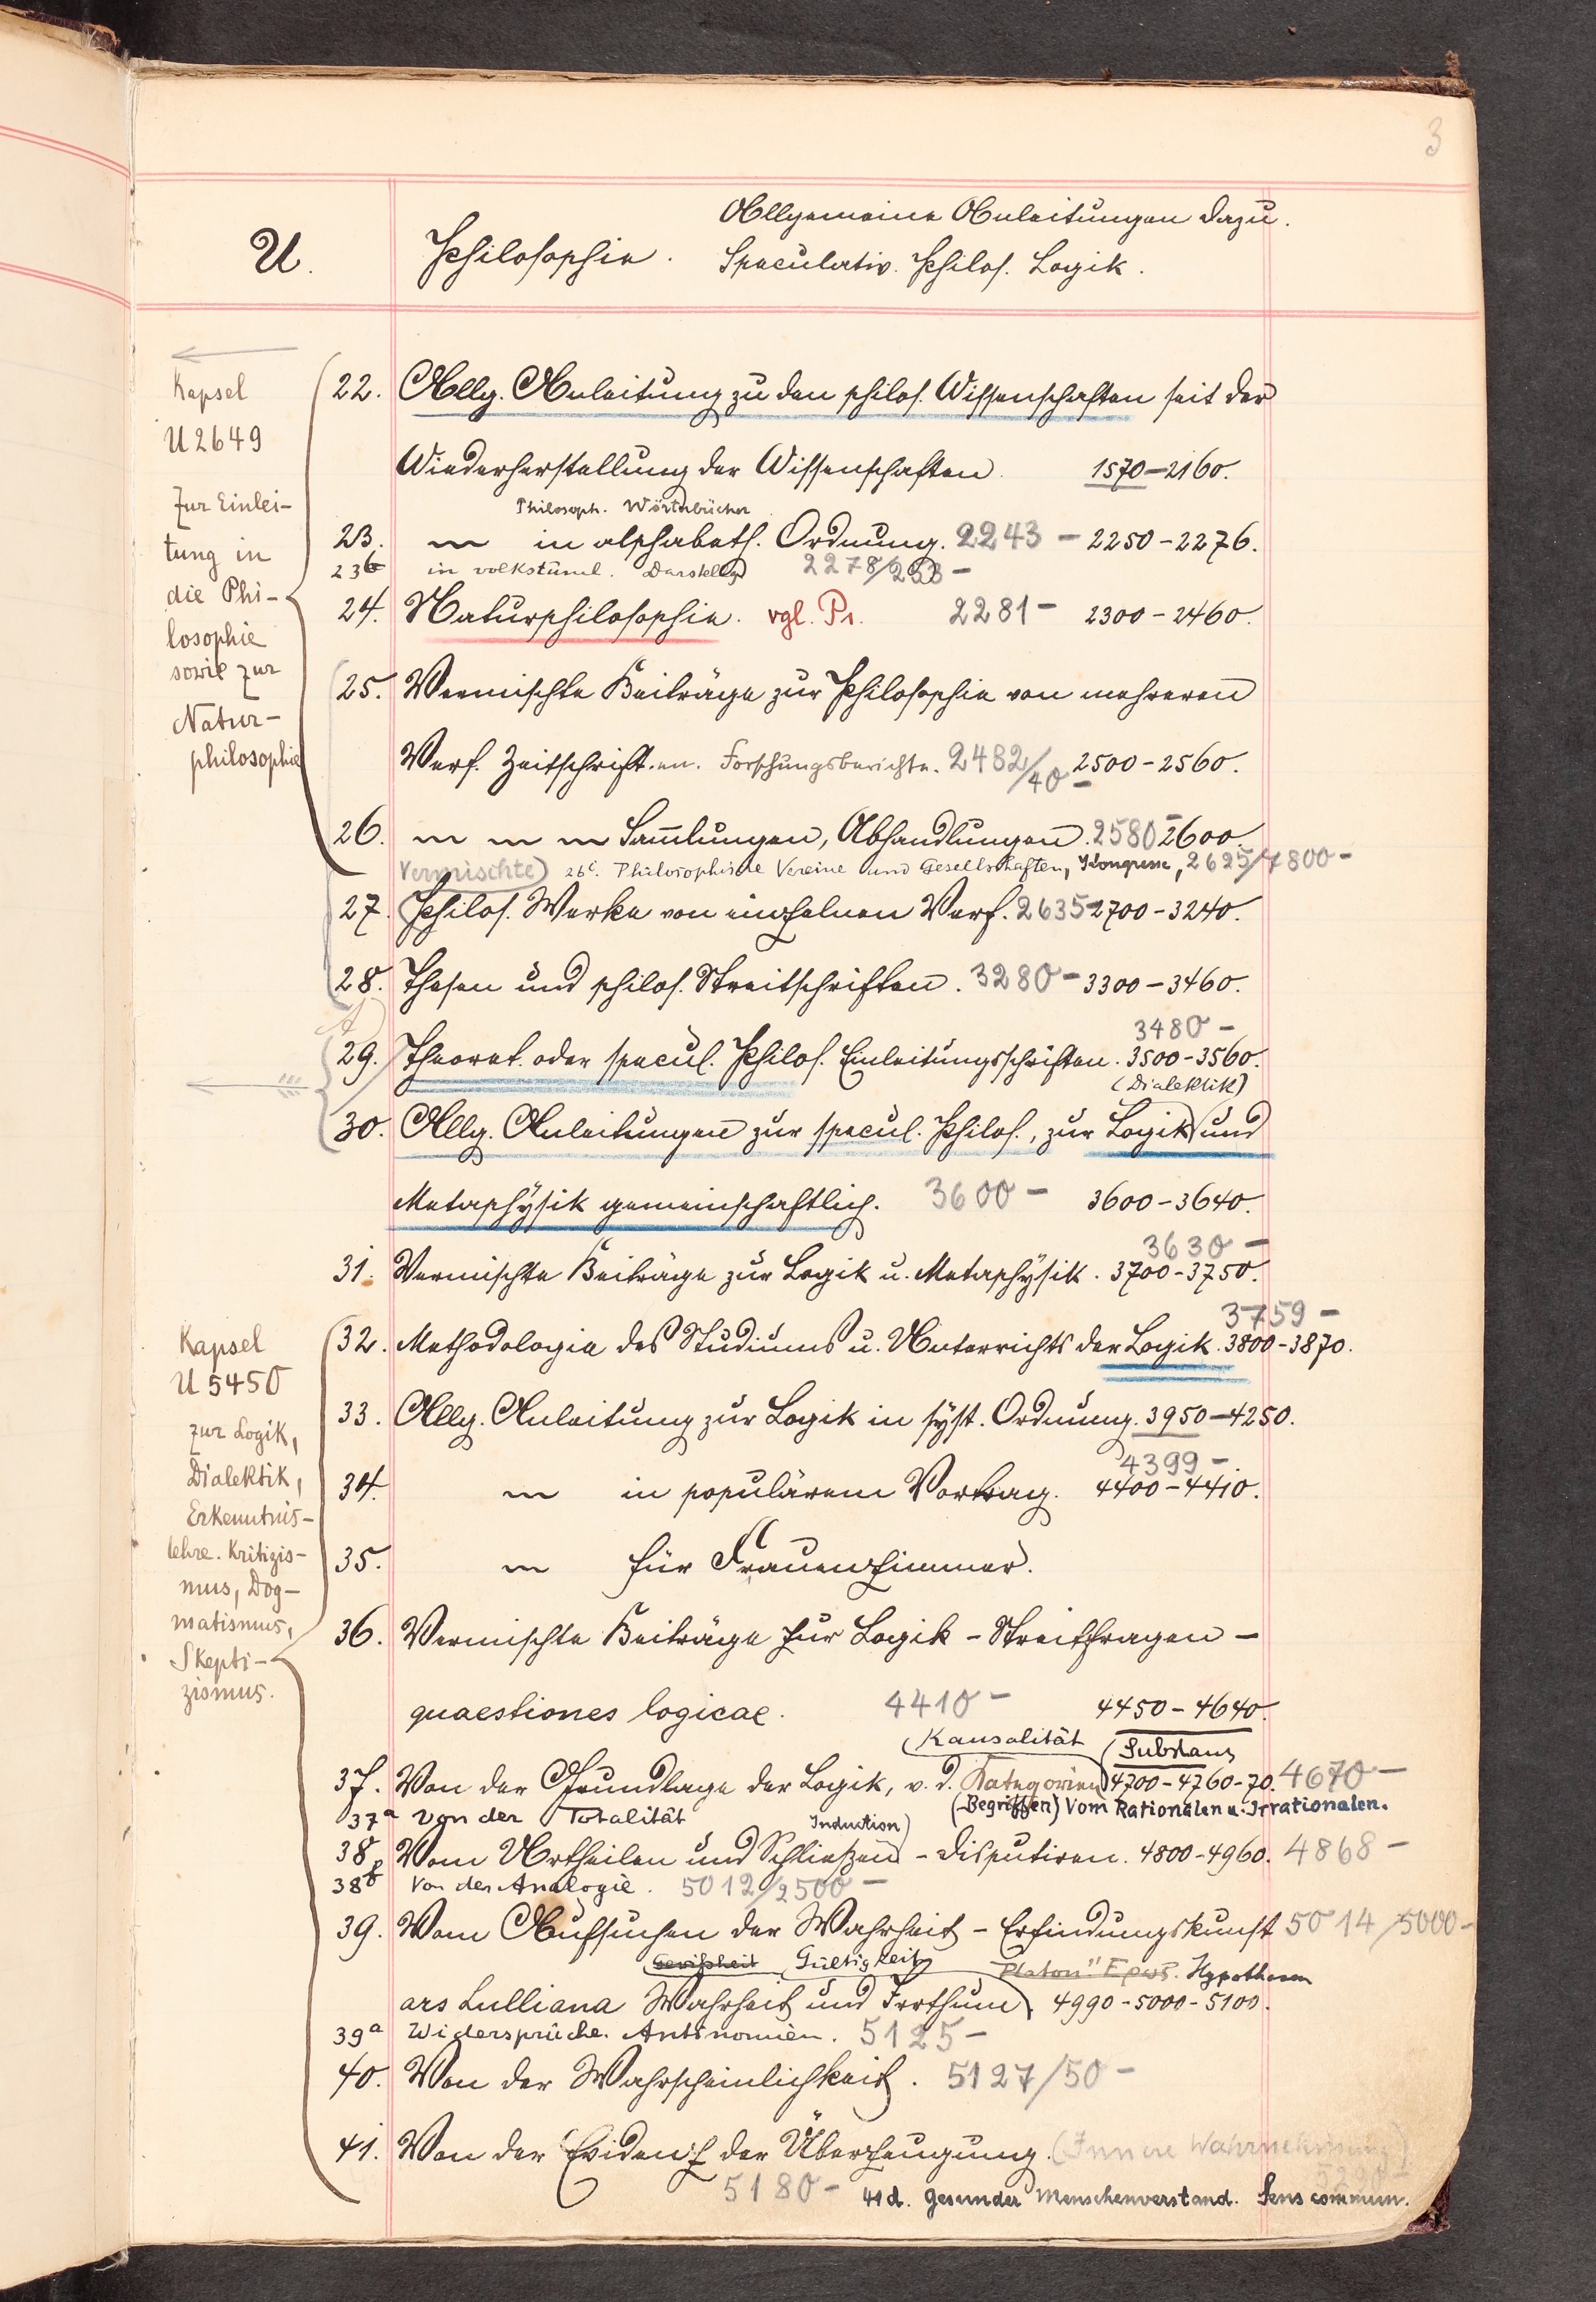 3
U. Philosophie. Allgemeine Anleitungen dazu.
Speculativ. Philos. Logik.
Kapsel
U 2649
Zur Einlei-
tung in
die Phi-
losophie
sowie zur
Natur-
philosophie
22. Allg. Anleitung zu den philos. Wissenschaften seit der
Wiederherstellung der Wissenschaften. 1570-2160.
Philosoph. Wörterbücher
23. " in alphabeth. Ordnung. 2243 - 2250-2276.
23b in volkstüml. Darstellg 2278/
24. Naturphilosophie. vgl. Pr. 2281- 2300-2460.
25. Vermischte Beiträge zur Philosophie von mehreren
Verf. Zeitschriften. Forschungsberichte. 2482/40- 2500-2560.
26. " " " Sammlungen, Abhandlungen. 2580- 2600.
Vermischte) 26c. Philosophische Vereine und Gesellschaften, Kongresse, 2625/7800-
27. Philos. Werke von einzelnen Verf. 2635- 2700-3240.
28. Thesen und philos. Streitschriften. 3280- 3300-3460.
3480-
29. Theoret. oder specul. Philos. Einleitungsschriften. 3500-3560.
(Dialektik)
30. Allg. Anleitungen zur specul. Philos., zur Logik und
Metaphysik gemeinschaftlich. 3600- 3600-3640.
3630-
31. Vermischte Beiträge zur Logik u. Metaphysik. 3700-3750.
Kapsel
U 5450
zur Logik,
Dialektik,
Erkenntnis-
lehre. Kritizis-
mus, Dog-
matismus,
Skepti-
zismus.
3759-
32. Methodologie des Studiums u. Unterrichts der Logik. 3800-3870.
33. Allg. Anleitung zur Logik in syst. Ordnung. 3950-4250.
4399-
34. " in populärem Vortrag. 4400-4410.
35. " für Frauenzimmer.
36. Vermischte Beiträge zur Logik - Streitfragen -
quaestiones logicae. 4410- 4450-4640.
Kausalität Substanz
37. Von der Grundlage der Logik, v. d. Kategorien 4700-4760-70. 4670-
(Begriffen) Vom Rationalen u. Irrationalen.
37a Von der Totalität
Induction)
38. Vom Urtheilen und Schließen - Disputiren. 4800-4960. 4868-
38b Von der Analogie. 5012/2500-
39. Vom Aufsuchen der Wahrheit - Erfindungskunst 5014/5000-
Gewißheit Gültigkeit Platon" Ερως. Hypothesen
ars Lulliana Wahrheit und Irrthum 4990-5000-5100.
39a Widersprüche. Antinomien. 5125-
40. Von der Wahrscheinlichkeit. 5127/50-
41. Von der Evidenz der Überzeugung. (Innere Wahrnehmung)
5180- 41d. Gesunder Menschenverstand. Sens commun.